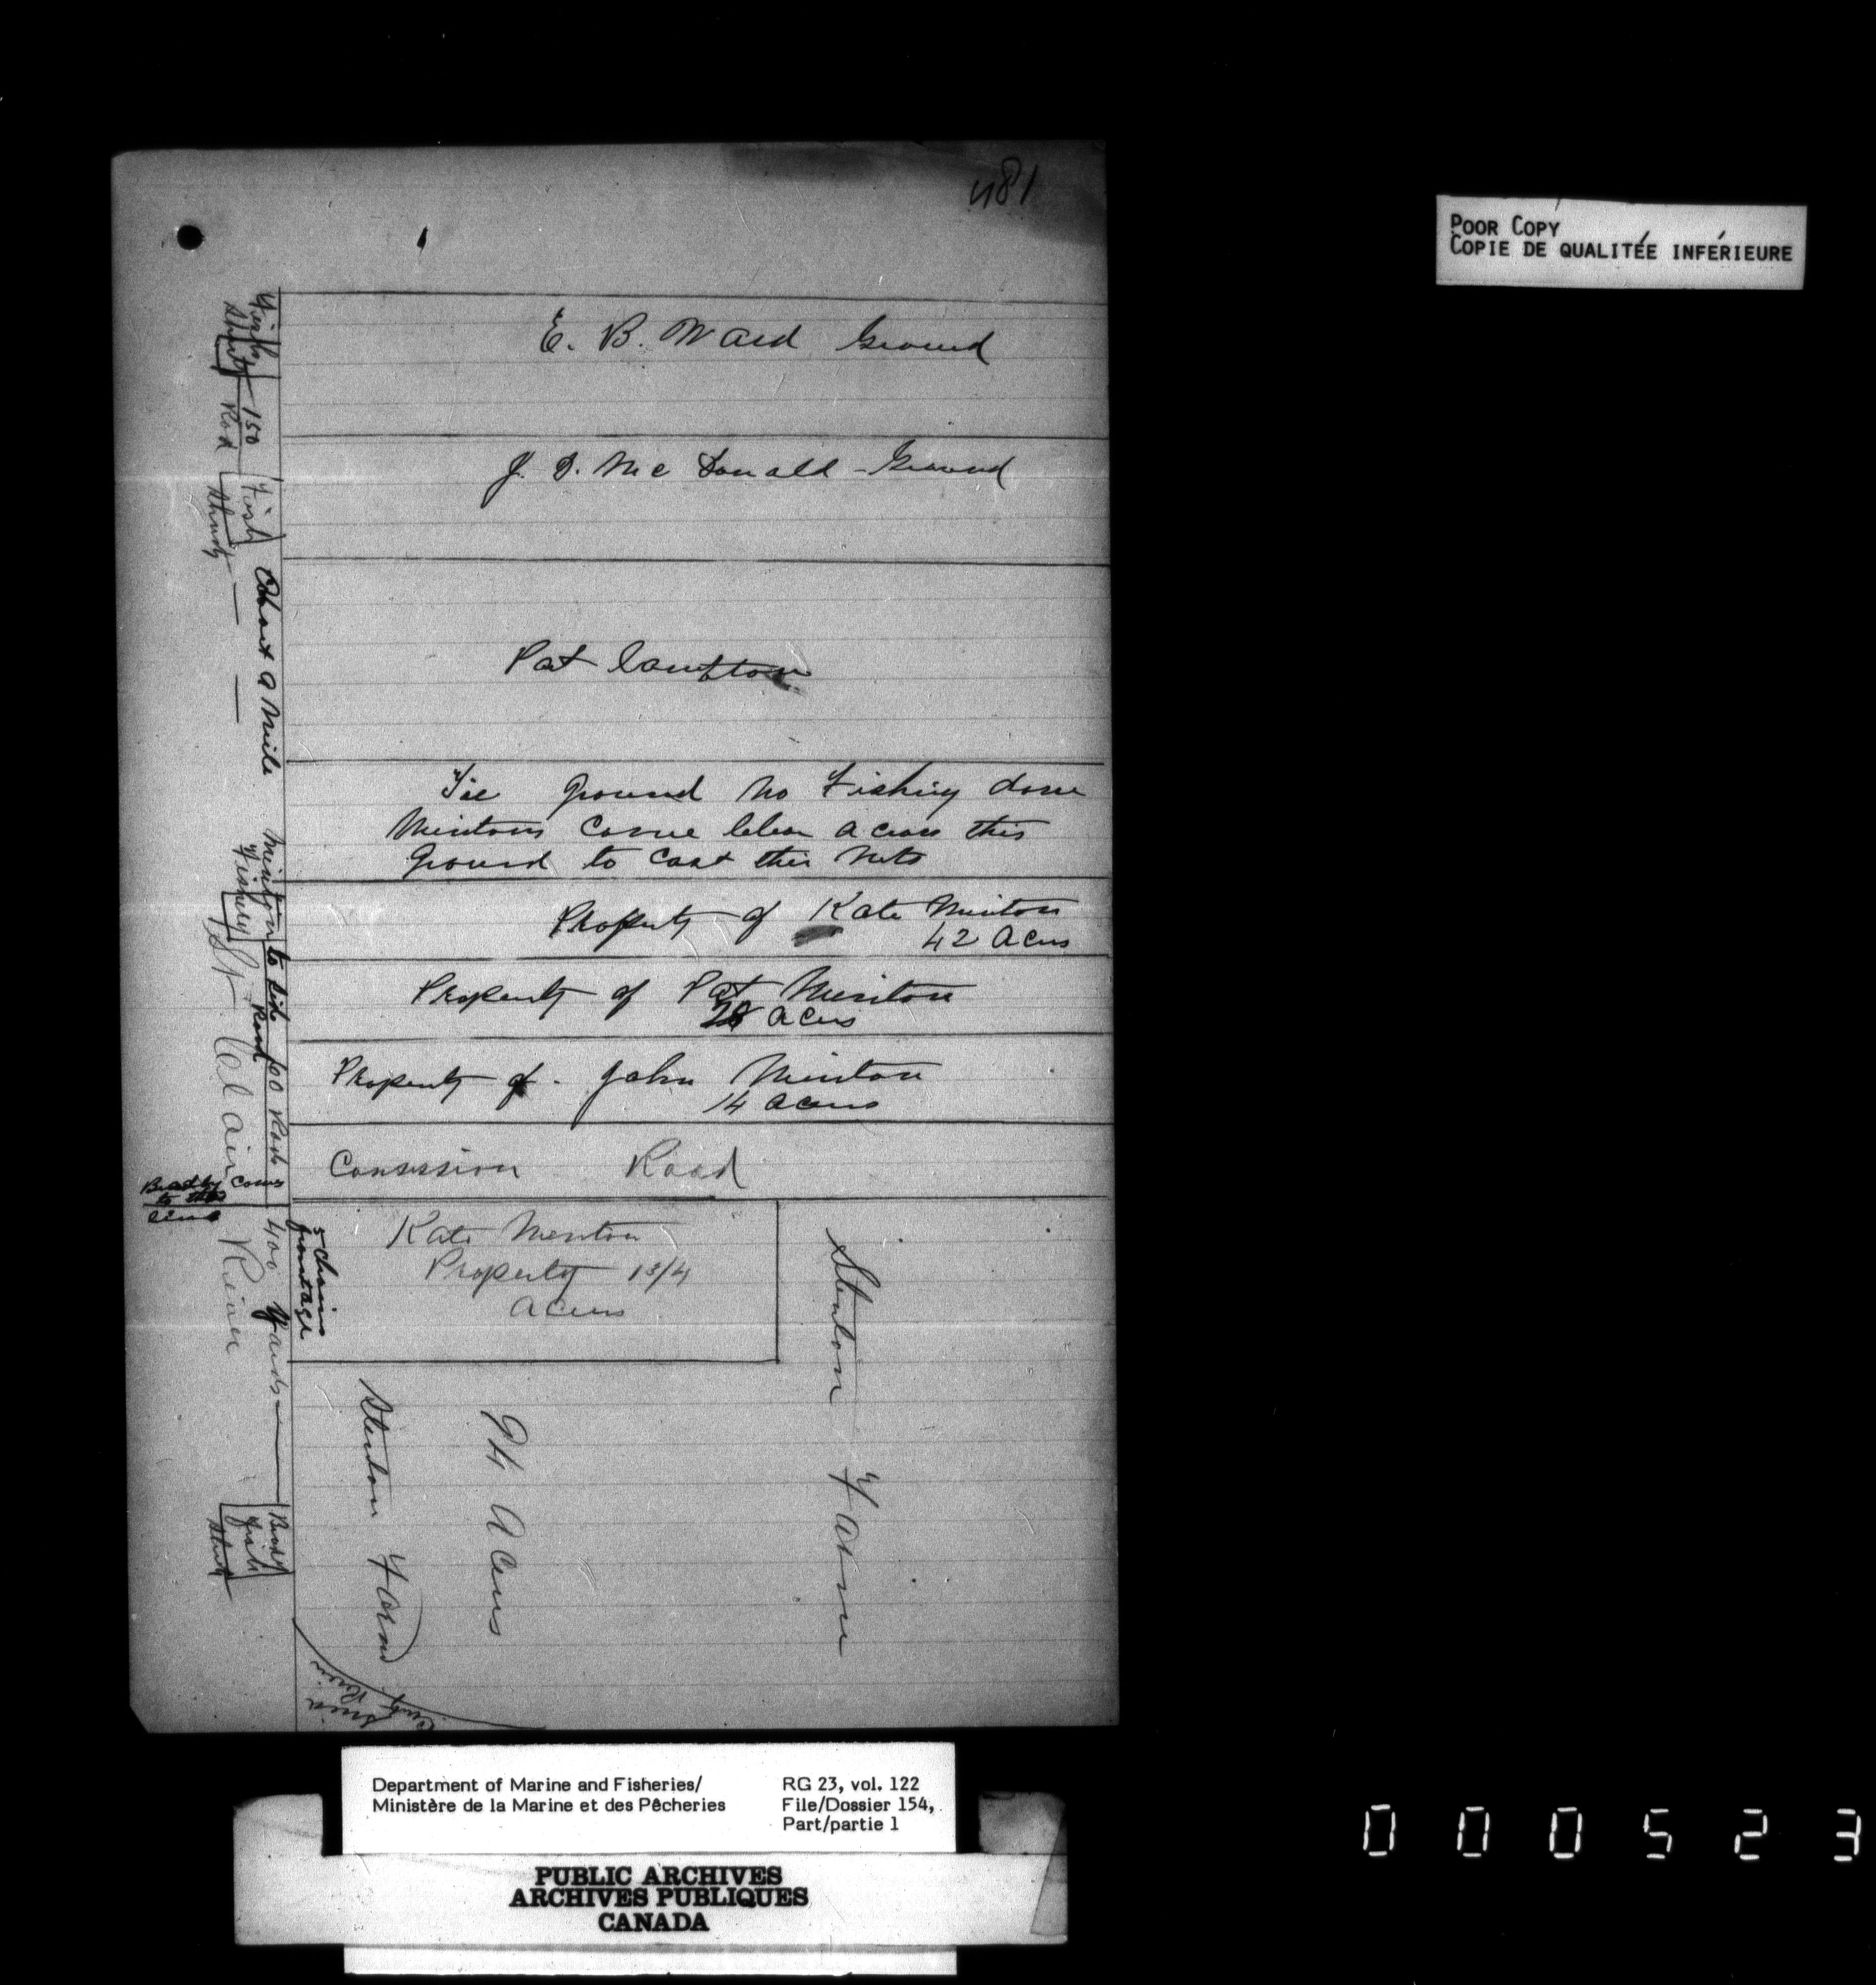 481
POOR COPY
COPIE DE QUALITÉE INFÉRIEURE
E. B. Ward Ground
J. D. Mc Donald - Ground
Pat
Ground No Fishing done
Mintons Come across this
Ground to Cast their Nets
Property of Kate Minton
42 Acres
Property of Pat Minton
28 acres
Property of John Minton
14 acres
Consession Road
Kate Minton
Property 13/4
acres
5 Chains
frontage
Stenton Farm
94 Acres
Stenton Farm
Fish
Shanty
150
Rod
Fish
Shanty
About a Mile
Minton
Fishery
to Side
Road
60 Rods
St Clair River
Bradley Comes
to this
Line
400 Yards
Fish
Shanty
River
Department of Marine and Fisheries/
Ministère de la Marine et des Pêcheries
RG 23, vol. 122
File/Dossier 154,
Part/partie 1
PUBLIC ARCHIVES
ARCHIVES PUBLIQUES
CANADA
000523